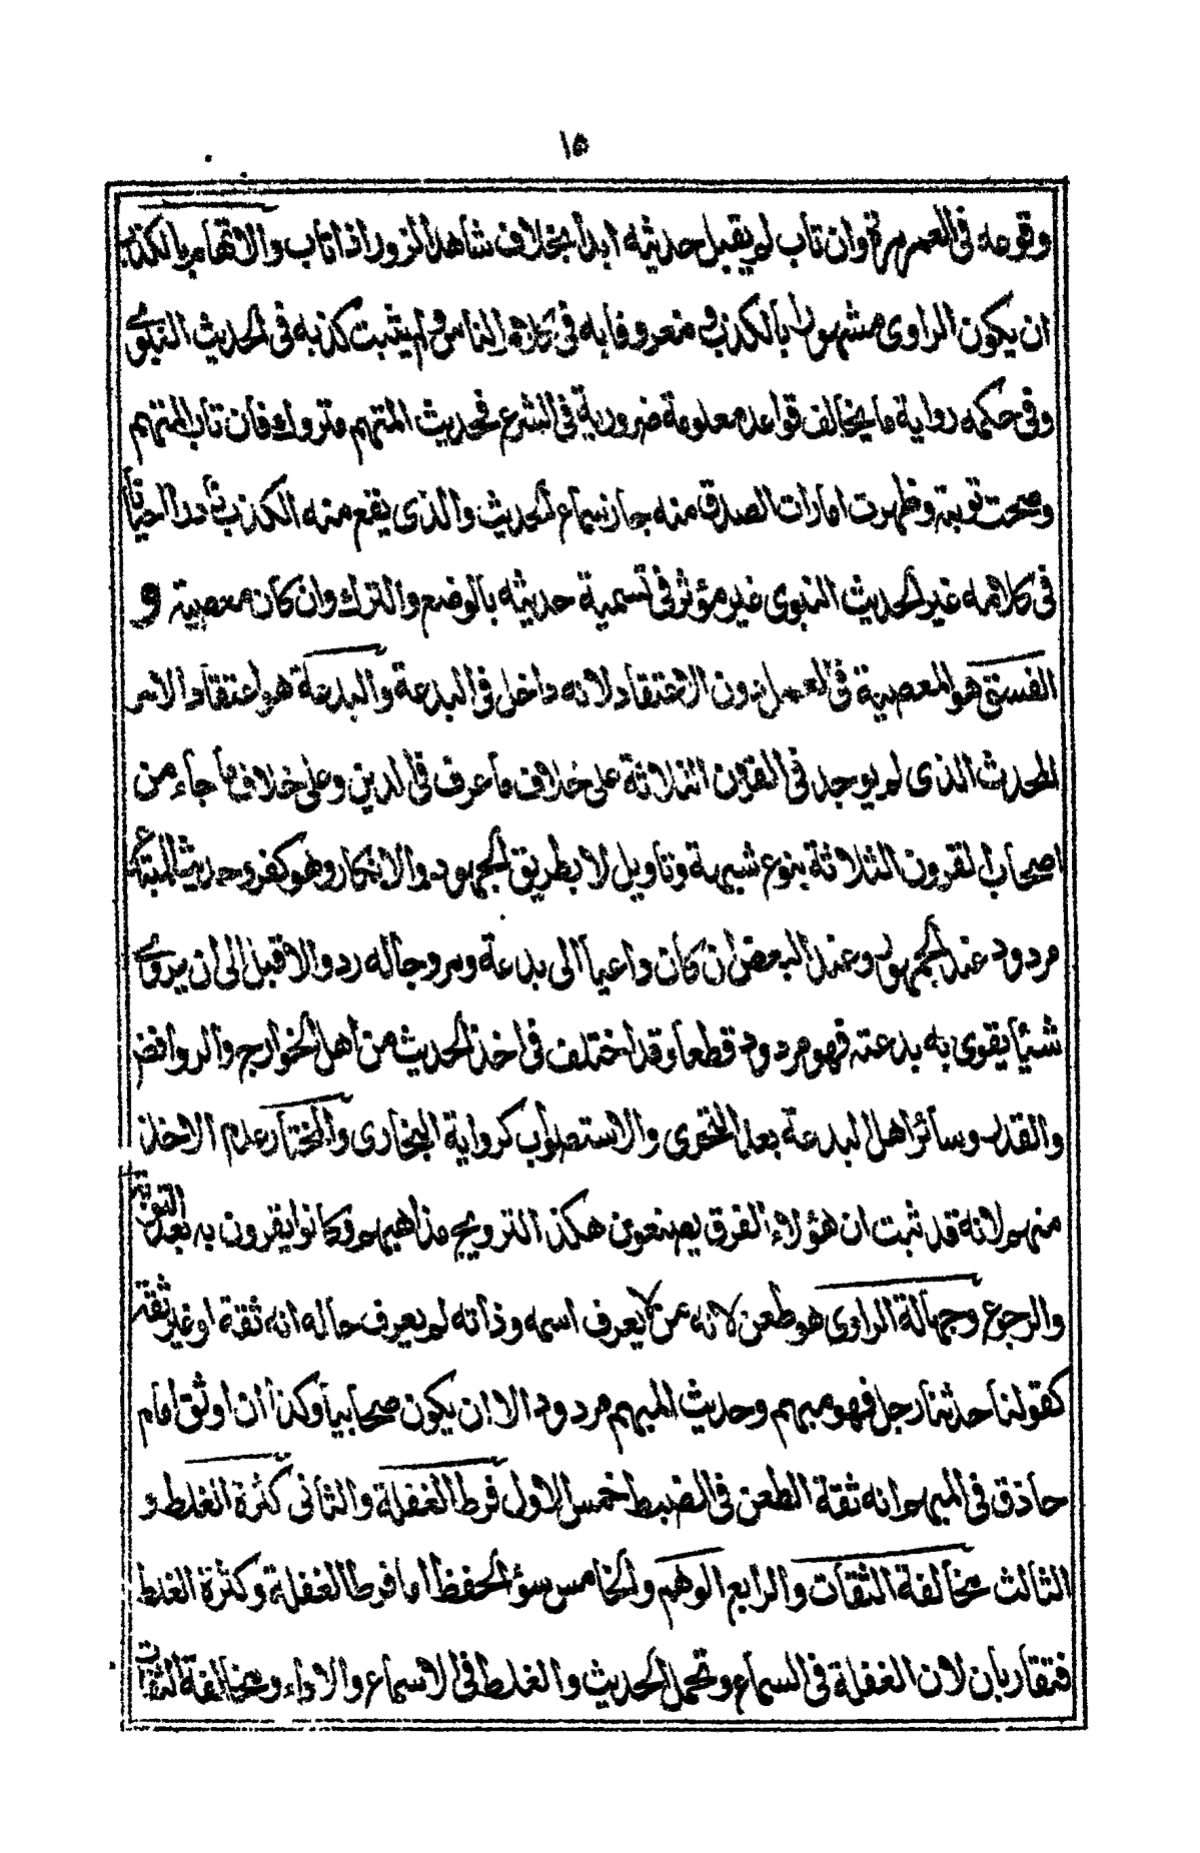 ١٥
وقوعه فى العمر مرة وان تاب لم يقبل حديثه ابدا بخلاف شاهد الزور اذا تاب والاتهام بالكذب
ان يكون الراوى مشهورا بالكذب و معروفا به فى كلام الناس ولم يثبت كذبه فى الحديث النبوى
وفى حكمه رواية ما يخالف قواعد معلومة ضرورية فى الشرع فحديث المتهم متروك فان تاب المتهم
وصحت توبته وظهرت امارات الصدق منه جاز سماع الحديث والذى يقع منه الكذب نادرا احيانا
فى كلامه غير الحديث النبوى غير مؤثر فى تسمية حديثه بالوضع والترك وان كان معصية و
الفسق هو المعصية فى العمل دون الاعتقاد لانه داخل فى البدعة والبدعة هو اعتقاد الامر
المحدث الذى لم يوجد فى القرون الثلاثة على خلاف ما عرف فى الدين وعلى خلاف ما جاء من
اصحاب القرون الثلاثة بنوع شبهة وتاويل لا بطريق الجمود والانكار وهو كفر وحديث المبتدع
مردود عند الجمهور وعند البعض ان كان داعيا الى بدعة ومروجا له رد والا قبل الى ان يروى
شيئا يقوى به بدعته فهو مردود قطعا وقد اختلف فى اخذ الحديث من اهل الخوارج والروافض
والقدر وسائر اهل البدعة بعد التحرى والاستصواب كرواية البخارى والمختار عدم الاخذ
منهم لانه قد ثبت ان هؤلاء الفرق يصنعون هكذا الترويج مذاهبهم وكانوا يقرون به بعد التوبة
والرجوع وجهالة الراوى هو طعن لانه من لا يعرف اسمه وذاته لم يعرف حاله انه ثقة او غير ثقة
كقولنا حدثنا رجل فهو مبهم وحديث المبهم مردود الا ان يكون صحابيا وكذا ان اوثق امام
حاذق فى المبهم وانه ثقة الطعن فى الضبط خمس الاول فرط الغفلة والثانى كثرة الغلط و
الثالث مخالفة الثقات والرابع الوهم والخامس سوء الحفظ اما فرط الغفلة وكثرة الغلط
فتقاربان لان الغفلة فى السماع وتحمل الحديث والغلط فى الاسماع والاداء ومخالفة الثقات